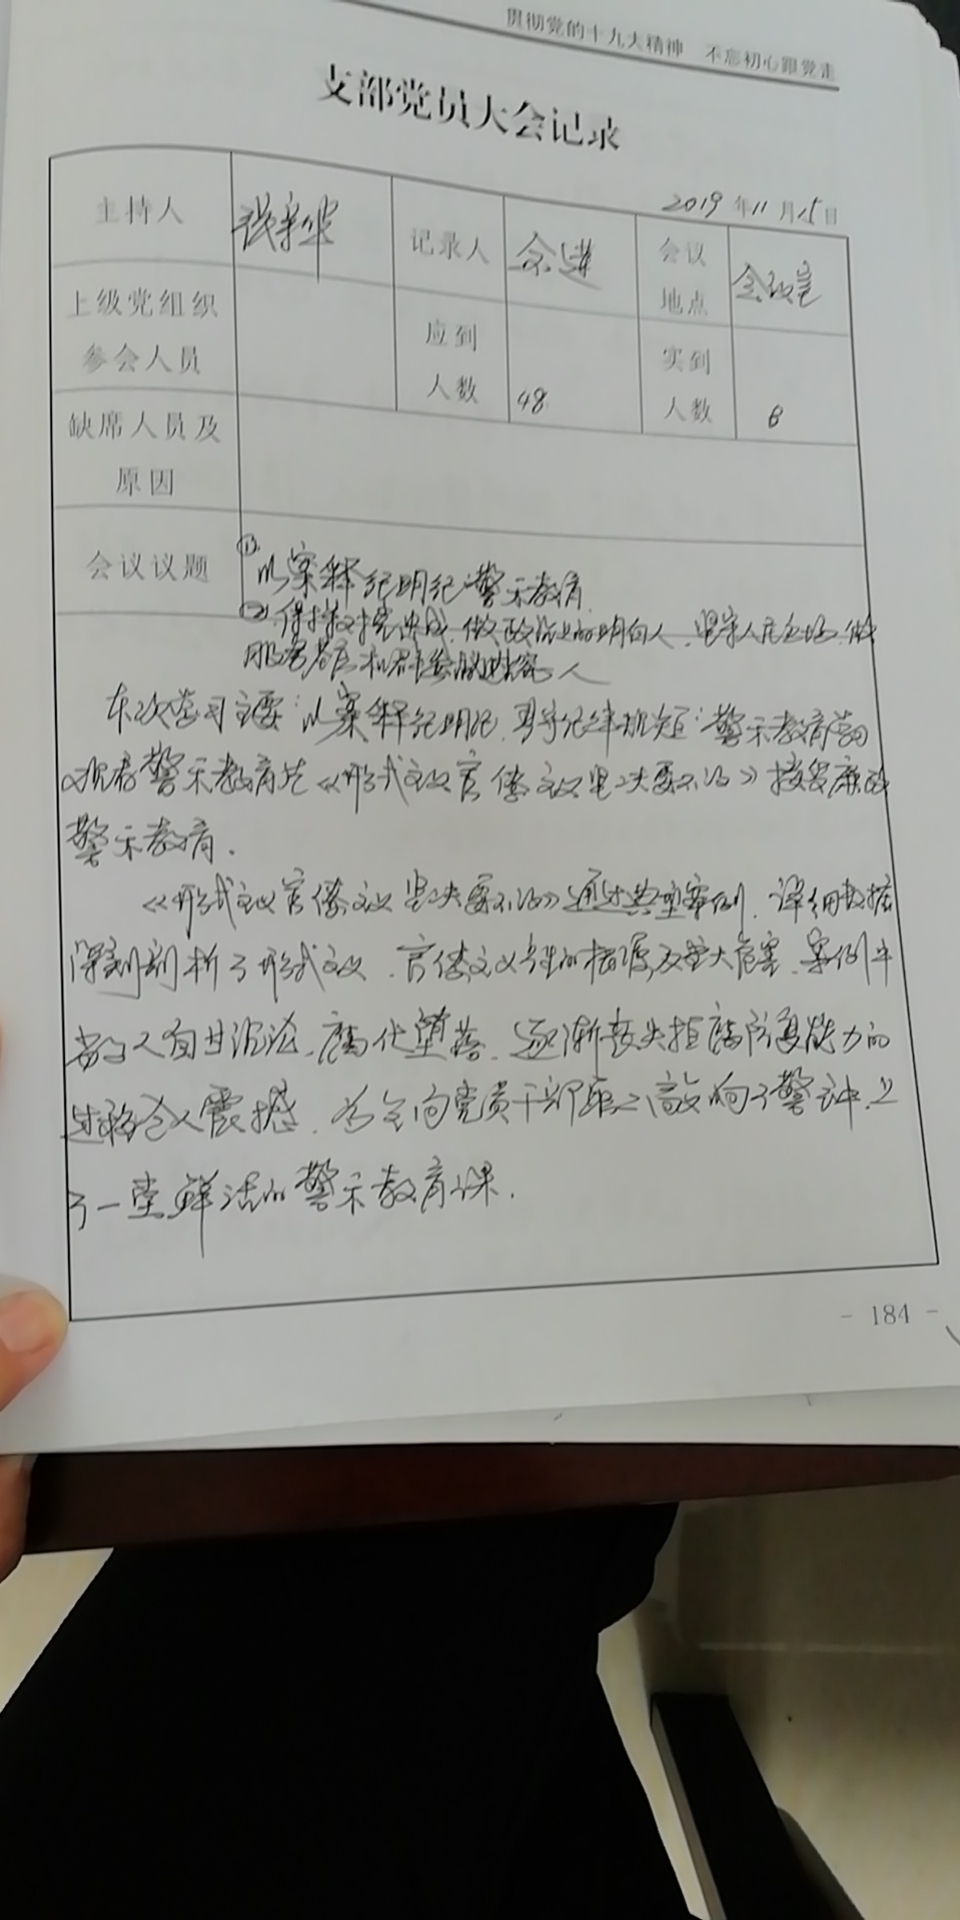 贯彻党的十九大精神 不忘初心跟党走
支部党员大会记录
2019年11月15日
主持人 张新华 记录人 余进 会议地点 会议室
上级党组织参会人员 应到人数 48 实到人数
缺席人员及原因
会议议题 ① 以案释纪明纪 警示教育
② 做政治上的明白人 坚守人民立场 做
人
本次学习主要以案释纪明纪 严守纪律规矩 警示教育
观看警示教育片《形式主义官僚主义坚决要不得》接受廉政
警示教育.
《形式主义官僚主义坚决要不得》通过典型案例、详细数据
深刻剖析了形式主义、官僚主义的根源及重大危害、案例中
人自甘沉沦、腐化堕落、逐渐丧失拒腐防变能力的
过程令人震撼、为全体党员干部敲响了警钟、上
了一堂鲜活的警示教育课.
- 184 -